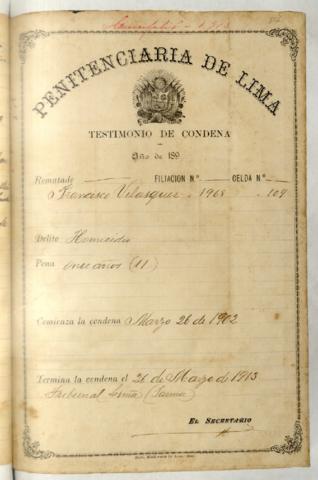 Cumplido - 1913
PENITENCIARIA DE LIMA
TESTIMONIO DE CONDENA
Año de 189
Rematado FILIACION Nº CELDA Nº
Francisco Velasquez . 1968 . 109
Delito Homicidio
Pena once años (11)
Comienza la condena Marzo 26 de 1902
Termina la condena el 26 de Marzo de 1913
Tribunal Lima
EL SECRETARIO